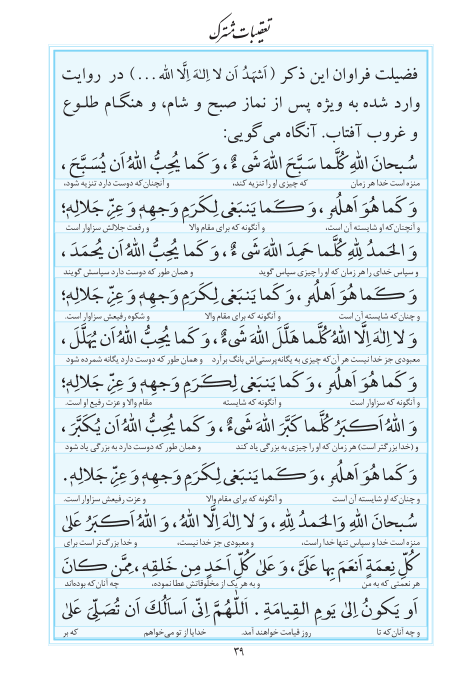 تعقیبات مشترک
فضیلت فراوان این ذکر (اَشهَدُ اَن لا اِلٰهَ اِلَّا الله ...) در روایت
وارد شده به ویژه پس از نماز صبح و شام، و هنگام طلوع
و غروب آفتاب. آنگاه می‌گویی:
سُبحانَ اللهِ کُلَّما سَبَّحَ اللهَ شَیءٌ، وَ کَما یُحِبُّ اللهُ اَن یُسَبَّحَ،
منزه است خدا هر زمان که چیزی او را تنزیه کند، و آنچنان‌که دوست دارد تنزیه شود،
وَ کَما هُوَ اَهلُهُ، وَ کَما یَنبَغی لِکَرَمِ وَجهِهِ وَ عِزِّ جَلالِهِ؛
و آنچنان‌که او شایسته آن است، و آنگونه که برای مقام والا و رفعت جلالش سزاوار است
وَ الحَمدُ لِلّٰهِ کُلَّما حَمِدَ اللهَ شَیءٌ، وَ کَما یُحِبُّ اللهُ اَن یُحمَدَ،
و سپاس خدای را هر زمان که او را چیزی سپاس گوید و همان طور که دوست دارد سپاسش گویند
وَ کَما هُوَ اَهلُهُ، وَ کَما یَنبَغی لِکَرَمِ وَجهِهِ وَ عِزِّ جَلالِهِ؛
و چنان‌که شایسته آن است و آنگونه که برای مقام والا و شکوه رفیعش سزاوار است.
وَ لا اِلٰهَ اِلَّا اللهُ کُلَّما هَلَّلَ اللهَ شَیءٌ، وَ کَما یُحِبُّ اللهُ اَن یُهَلَّلَ،
معبودی جز خدا نیست هر آن‌که چیزی به یگانه‌پرستی‌اش بانگ برآرد و همان طور که دوست دارد یگانه شمرده شود
وَ کَما هُوَ اَهلُهُ، وَ کَما یَنبَغی لِکَرَمِ وَجهِهِ وَ عِزِّ جَلالِهِ؛
و آنگونه که سزاوار است و آنگونه که شایسته مقام والا و عزت رفیع او است.
وَ اللهُ اَکبَرُ کُلَّما کَبَّرَ اللهَ شَیءٌ، وَ کَما یُحِبُّ اللهُ اَن یُکَبَّرَ،
و (خدا بزرگتر است) هر زمان که او را چیزی به بزرگی یاد کند و همان طور که دوست دارد به بزرگی یاد شود
وَ کَما هُوَ اَهلُهُ، وَ کَما یَنبَغی لِکَرَمِ وَجهِهِ وَ عِزِّ جَلالِهِ.
و چنان‌که او شایسته آن است و آنگونه که برای مقام والا و عزت رفیعش سزاوار است.
سُبحانَ اللهِ وَالحَمدُ لِلّٰهِ، وَ لا اِلٰهَ اِلَّا اللهُ، وَ اللهُ اَکبَرُ عَلیٰ
منزه است خدا و سپاس تنها خدا راست، و معبودی جز خدا نیست، و خدا بزرگ‌تر است برای
کُلِّ نِعمَةٍ اَنعَمَ بِها عَلَیَّ، وَ عَلیٰ کُلِّ اَحَدٍ مِن خَلقِهِ، مِمَّن کانَ
هر نعمتی که به من و به هر یک از مخلوقاتش عطا نموده، چه آنان‌که بوده‌اند
اَو یَکونُ اِلیٰ یَومِ القِیامَةِ. اَللّٰهُمَّ اِنّی اَساَلُکَ اَن تُصَلِّیَ عَلیٰ
و چه آنان‌که تا روز قیامت خواهند آمد. خدایا از تو می‌خواهم که بر
۳۹